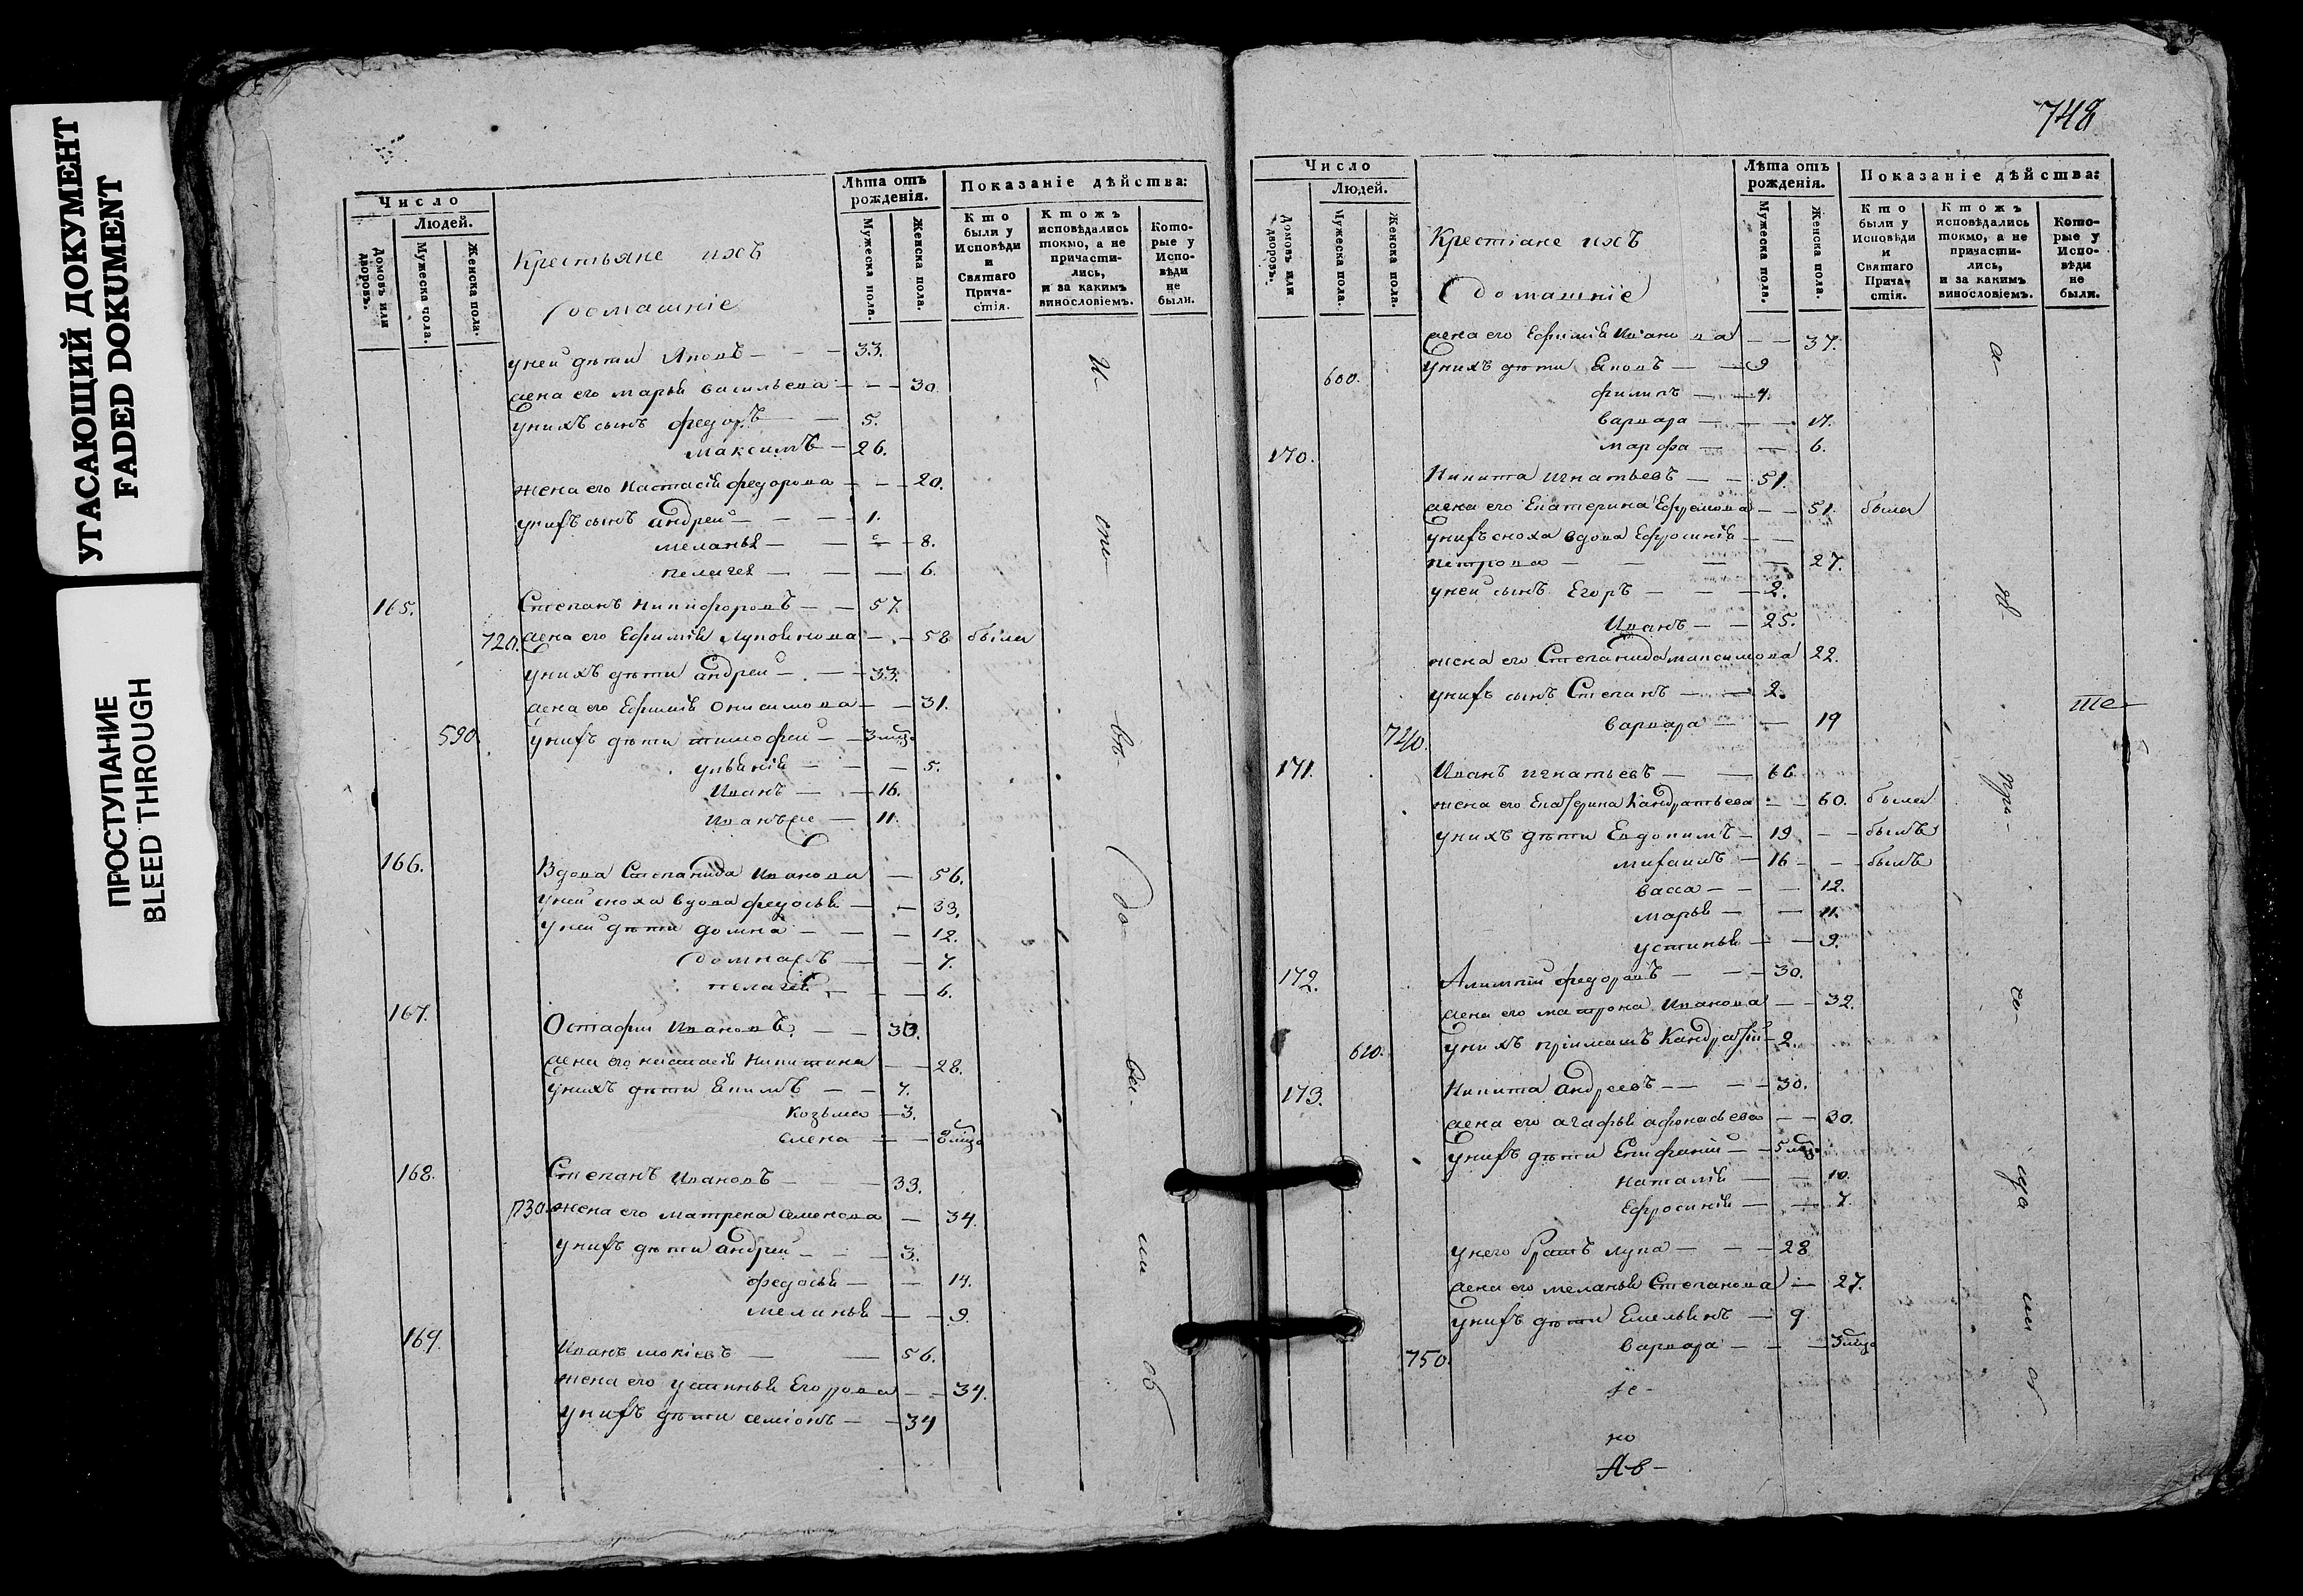 УГАСАЮЩИЙ ДОКУМЕНТ
FADED DOKUMENT
ПРОСТУПАНИЕ
BLEED THROUGH
Число
Людей.
Домовъ или дворовъ.
Мужеска пола.
Женска пола.
Крестьяне ихъ
домашніе
Лѣта отъ рожденія.
Мужеска пола.
Женска пола.
Показаніе дѣйства:
Кто были у Исповѣди и Святаго Причастія.
Ктожъ исповѣдались токмо, а не причастились, и за какимъ винословіемъ.
Которые у Исповѣди не были.
уней дѣти Яковъ — 33.
жена его марья васильева — 30.
унихъ сынъ федоръ — 5.
максимъ — 26.
жена его Настасія федорова — 20.
унихъ сынъ андрей — 1.
меланья — 8.
пелагея — 6.
165. Степанъ Никифоровъ — 57.
720. жена его Ефимія — 58 была
унихъ дѣти андрей — 33.
жена его Ефимія Онисимова — 31.
590. унихъ дѣти тимофей — 3 мцъ
ульянія — 5.
Иванъ — 16.
Иванъже — 11.
166. Вдова Степанида Иванова — 56.
уней сноха вдова федосья — 33.
уней дѣти домна — 12.
домнажъ — 7.
пелагея — 6.
167. Остафій Ивановъ — 30.
жена его настасія Никитина — 28.
унихъ дѣти Екимъ — 7.
Козьма — 3.
елена — 8 мцъ
168. Степанъ Ивановъ — 33.
730. жена его матрена семенова — 34.
унихъ дѣти андрей — 3.
федосья — 14.
меланья — 9.
169. Иванъ мокіевъ — 56.
жена его устинья Егорова — 34.
унихъ дѣти семіонъ — 34
И спо вѣ до ва ли сь
748
Число
Людей.
Домовъ или дворовъ.
Мужеска пола.
Женска пола.
Крестіане ихъ
домашніе
Лѣта отъ рожденія.
Мужеска пола.
Женска пола.
Показаніе дѣйства:
Кто были у Исповѣди и Святаго Причастія.
Ктожъ исповѣдались токмо, а не причастились, и за какимъ винословіемъ.
Которые у Исповѣди не были.
жена его Ефимія Иванова — 37.
600. унихъ дѣти Яковъ — 9
филипъ — 4.
варвара — 17.
марфа — 6.
170. Никита игнатьевъ — 51.
жена его Екатерина Ефремова — 51. была
унихъ сноха вдова Ефросинія
петрова — 27.
уней сынъ Егоръ — 2.
Иванъ — 25.
жена его Степанида максимова 22.
унихъ сынъ Степанъ — 2.
740. варвара — 19
171. Иванъ игнатьевъ — 66
жена его Екатерина Кандратьева — 60. была
унихъ дѣти Евдокимъ — 19 — былъ
михаилъ — 16 — былъ
васса — 12.
марья — 11.
устинья — 9.
172. Алимпій федоровъ — 30.
жена его матрона Иванова — 32.
610. унихъ пріимашъ Кандратій — 2.
173. Никита андреевъ — 30.
жена его агафья афонасьева — 30.
унихъ дѣти Епифаній — 5 мцъ
Наталія — 10.
Ефросинія — 7.
унего братъ лука — 28
жена его меланья Степанова — 27.
унихъ дѣти Емельянъ — 9
750. варвара — 3 мцъ